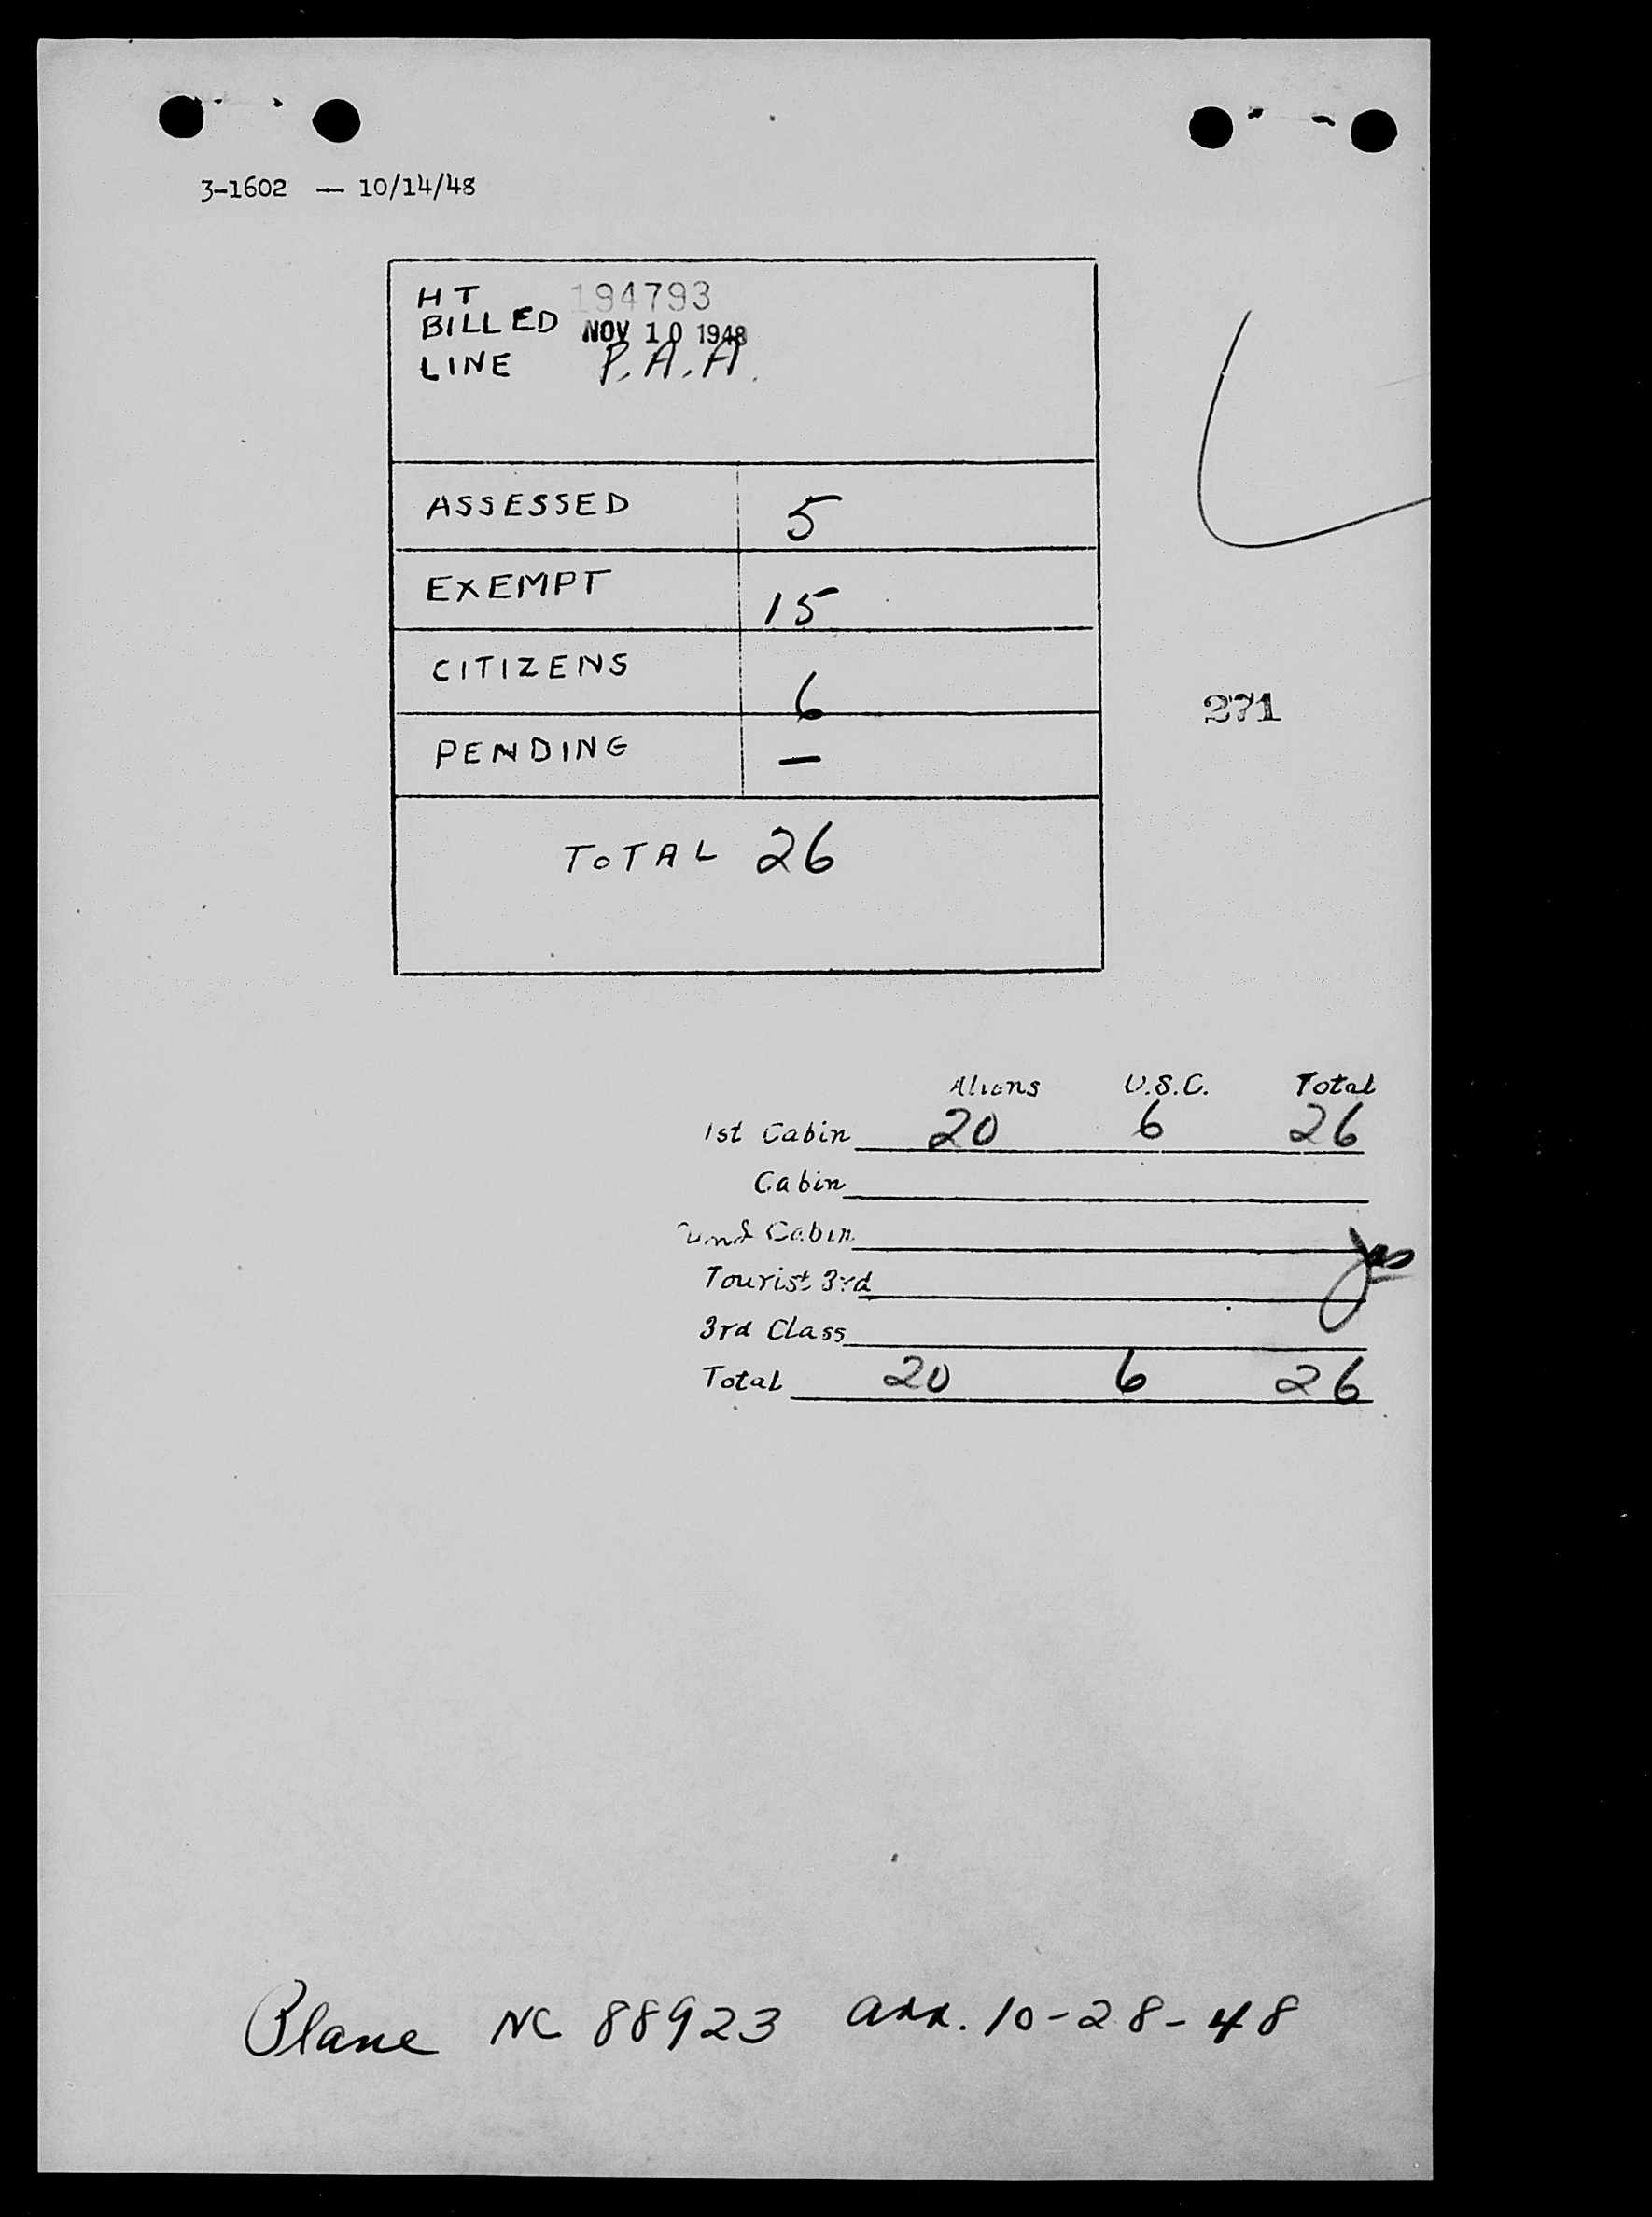 3-1602 — 10/14/48
HT 194793
BILLED NOV 10 1948
LINE P.A.A.
ASSESSED 5
EXEMPT 15
CITIZENS 6
271
PENDING —
TOTAL 26
Aliens U.S.C. Total
1st Cabin 20 6 26
Cabin
Cabin
Tourist 3rd
3rd Class
Total 20 6 26
Plane NC 88923 arr. 10-28-48